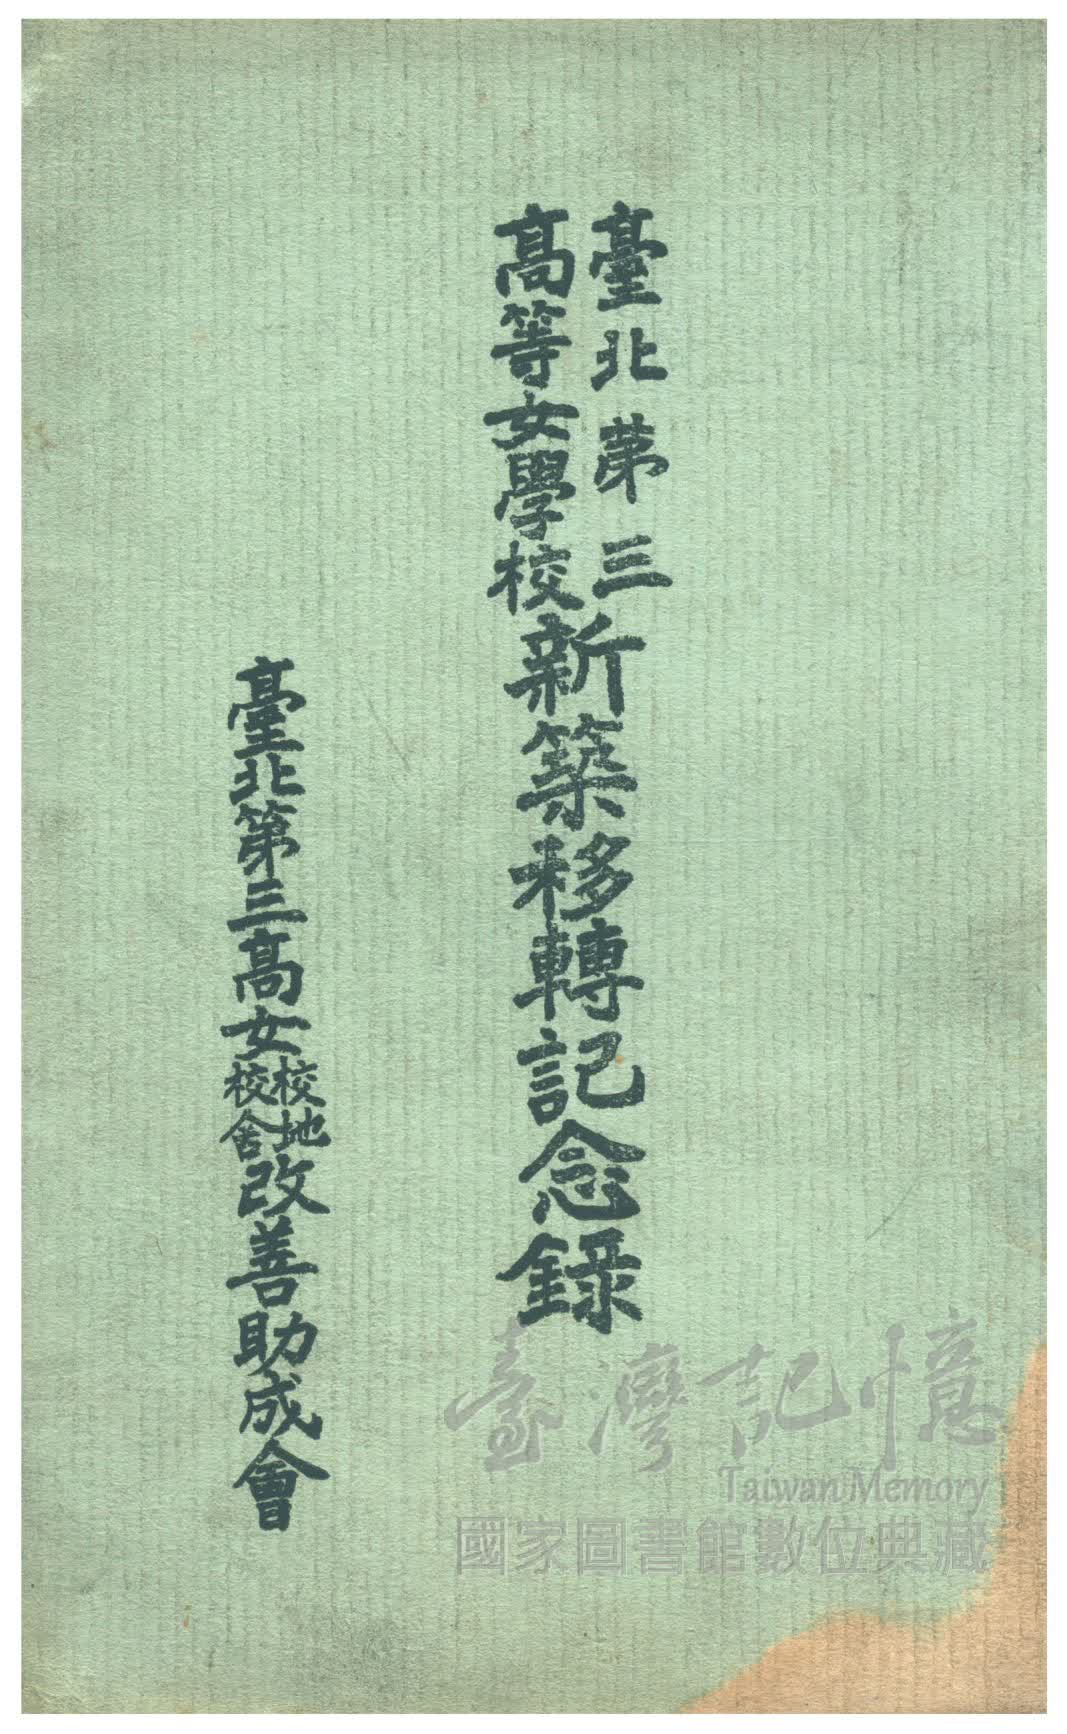 臺北第三
高等女學校
新築移轉記念錄
臺北第三高女
校地
校舍
改善助成會
臺灣記憶
Taiwan Memory
國家圖書館數位典藏